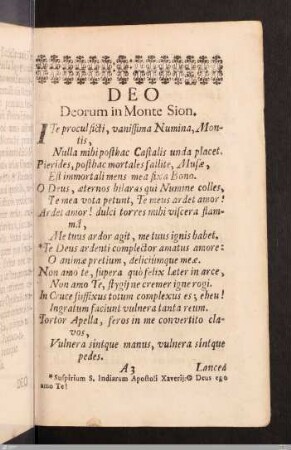 DEO
Deorum in Monte Sion.
ITe procul ficti, vanissima Numina, Mon-
tis,
Nulla mihi posthac Castalis unda placet.
Pierides, posthac mortales fallite, Musæ,
Est immortali mens mea fixa Bono.
O Deus, æternos hilaras qui Numine colles,
Te mea vota petunt, Te meus ardet amor!
Ardet amor! dulci torres mihi viscera flam-
mâ,
Me tuus ardor agit, me tuus ignis habet.
*Te Deus ardenti complector amatus amore:
O animæ pretium, deliciúmque meæ.
Non amo te, superâ quò felix later in arce,
Non amo Te, stygij ne cremer igne rogi.
In Cruce suffixus totum complexus es, eheu!
Ingratum faciunt vulnera tanta reum.
Tortor Apella, feros in me convertito cla-
vos,
Vulnera sintque manus, vulnera sintque
pedes.
A3 Lancea
*Suspirium S. Indiarum Apostoli Xaverij: O Deus ego
amo Te!